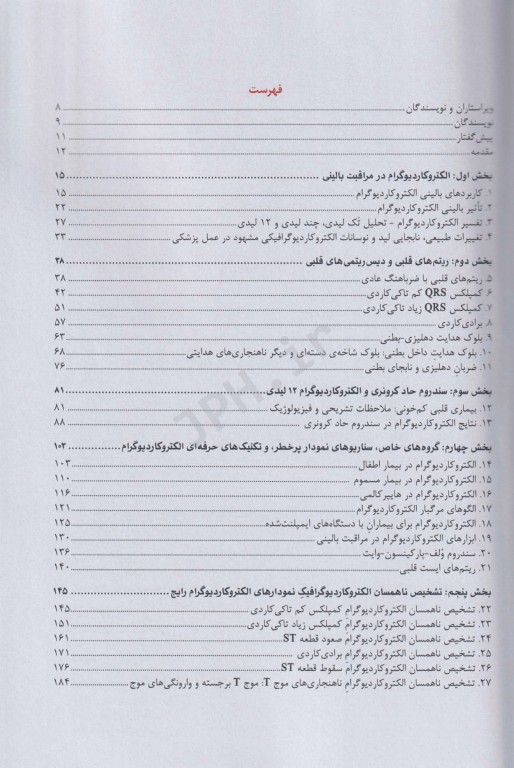 فهرست
ویراستاران و نویسندگان ۸
نویسندگان ۹
پیش‌گفتار ۱۱
مقدمه ۱۲
بخش اول: الکتروکاردیوگرام در مراقبت بالینی ۱۵
۱. کاربردهای بالینی الکتروکاردیوگرام ۱۵
۲. تأثیر بالینی الکتروکاردیوگرام ۲۲
۳. تفسیر الکتروکاردیوگرام - تحلیل تک لیدی، چند لیدی و ۱۲ لیدی ۲۷
۴. تغییرات طبیعی، نابجایی لید و نوسانات الکتروکاردیوگرافیکی مشهود در عمل پزشکی ۳۳
بخش دوم: ریتم‌های قلبی و دیس‌ریتمی‌های قلبی ۳۸
۵. ریتم‌های قلبی با ضرباهنگ عادی ۳۸
۶. کمپلکس QRS کم تاکی‌کاردی ۴۲
۷. کمپلکس QRS زیاد تاکی‌کاردی ۵۱
۸. برادی‌کاردی ۵۷
۹. بلوک هدایت دهلیزی-بطنی ۶۳
۱۰. بلوک هدایتِ داخل بطنی: بلوک شاخه‌ی دسته‌ای و دیگر ناهنجاری‌های هدایتی ۶۸
۱۱. ضربانِ دهلیزی و نابجای بطنی ۷۶
بخش سوم: سندروم حاد کرونری و الکتروکاردیوگرام ۱۲ لیدی ۸۱
۱۲. بیماری قلبی کم‌خونی: ملاحظات تشریحی و فیزیولوژیک ۸۱
۱۳. نتایج الکتروکاردیوگرام در سندروم حاد کرونری ۸۸
بخش چهارم: گروه‌های خاص، سناریوهای نمودار پرخطر، و تکنیک‌های حرفه‌ای الکتروکاردیوگرام ۱۰۳
۱۴. الکتروکاردیوگرام در بیمار اطفال ۱۰۳
۱۵. الکتروکاردیوگرام در بیمار مسموم ۱۱۰
۱۶. الکتروکاردیوگرام در هایپرکالمی ۱۱۶
۱۷. الگوهای مرگبار الکتروکاردیوگرام ۱۲۱
۱۸. الکتروکاردیوگرام برای بیماران با دستگاه‌های ایمپلنت‌شده ۱۲۵
۱۹. ابزارهای الکتروکاردیوگرام در مراقبت بالینی ۱۳۰
۲۰. سندروم وُلف-پارکینسون-وایت ۱۳۶
۲۱. ریتم‌های ایست قلبی ۱۴۰
بخش پنجم: تشخیص ناهمسان الکتروکاردیوگرافیکِ نمودارهای الکتروکاردیوگرام رایج ۱۴۵
۲۲. تشخیص ناهمسان الکتروکاردیوگرامِ کمپلکس کم تاکی‌کاردی ۱۴۵
۲۳. تشخیص ناهمسان الکتروکاردیوگرامِ کمپلکس زیاد تاکی‌کاردی ۱۵۱
۲۴. تشخیص ناهمسان الکتروکاردیوگرامِ صعود قطعه ST ۱۶۱
۲۵. تشخیص ناهمسان الکتروکاردیوگرامِ برادی‌کاردی ۱۷۱
۲۶. تشخیص ناهمسان الکتروکاردیوگرامِ سقوط قطعه ST ۱۷۶
۲۷. تشخیص ناهمسان الکتروکاردیوگرامِ ناهنجاری‌های موج T: موج T برجسته و وارونگی‌های موج ۱۸۴
JPH.ir